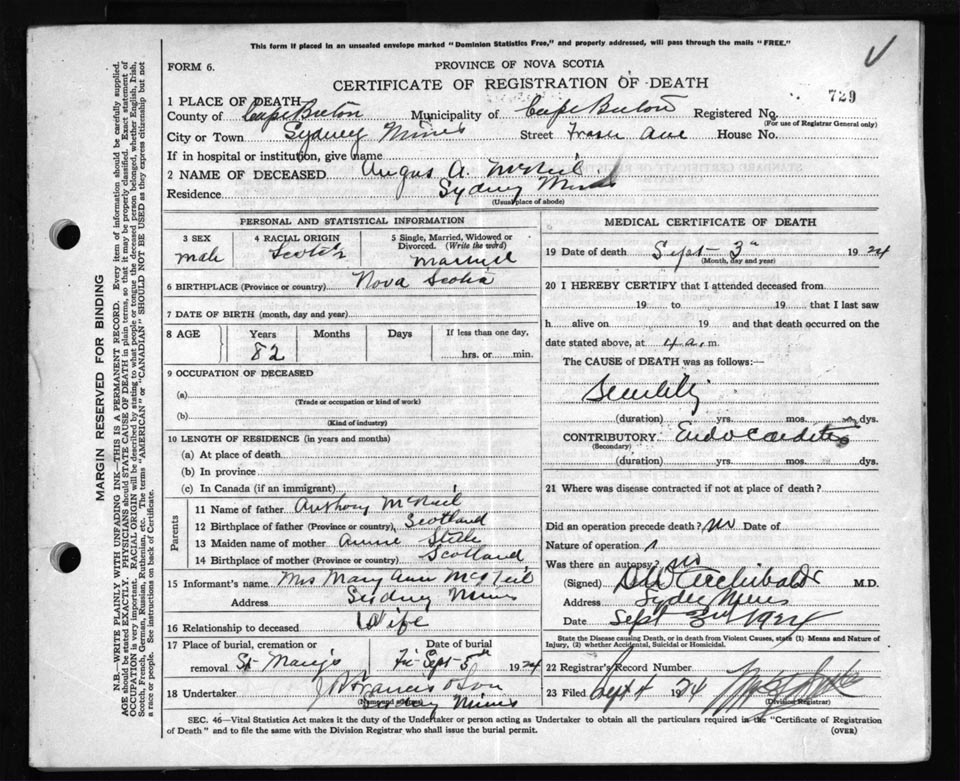 This form if placed in an unsealed envelope marked "Dominion Statistics Free," and properly addressed, will pass through the mails "FREE."
FORM 6.
PROVINCE OF NOVA SCOTIA
CERTIFICATE OF REGISTRATION OF DEATH
729
1 PLACE OF DEATH
County of Cape Breton Municipality of Cape Breton Registered No.
(For use of Registrar General only)
City or Town Sydney Mines Street Fraser Ave House No.
If in hospital or institution, give name
2 NAME OF DECEASED Angus A. McNeil
Residence Sydney Mines
(Usual place of abode)
PERSONAL AND STATISTICAL INFORMATION
3 SEX 4 RACIAL ORIGIN 5 Single, Married, Widowed or Divorced. (Write the word)
male Scotch married
6 BIRTHPLACE (Province or country) Nova Scotia
7 DATE OF BIRTH (month, day and year)
8 AGE Years Months Days If less than one day,
82 hrs. or min.
9 OCCUPATION OF DECEASED
(a)
(Trade or occupation or kind of work)
(b)
(Kind of industry)
10 LENGTH OF RESIDENCE (in years and months)
(a) At place of death
(b) In province
(c) In Canada (if an immigrant)
Parents
11 Name of father Anthony McNeil
12 Birthplace of father (Province or country) Scotland
13 Maiden name of mother Annie
14 Birthplace of mother (Province or country) Scotland
15 Informant's name Mrs Mary Ann McNeil
Address Sydney Mines
16 Relationship to deceased Wife
17 Place of burial, cremation or Date of burial
removal St Mary's Fri Sept 5th 1924
18 Undertaker J R Francis & Son
(Name and address)
Sydney Mines
MEDICAL CERTIFICATE OF DEATH
19 Date of death Sept 3rd 1924
(Month, day and year)
20 I HEREBY CERTIFY that I attended deceased from
19 to 19 that I last saw
h alive on 19 and that death occurred on the
date stated above, at 4 a. m.
The CAUSE of DEATH was as follows:—
Senility
(duration) yrs. mos. dys.
CONTRIBUTORY. Endocarditis
(Secondary)
(duration) yrs. mos. dys.
21 Where was disease contracted if not at place of death?
Did an operation precede death? no Date of
Nature of operation
Was there an autopsy? no
(Signed) Archibald M.D.
Address Sydney Mines
Date Sept 3rd 1924
State the Disease causing Death, or in death from Violent Causes, state (1) Means and Nature of
Injury, (2) whether Accidental, Suicidal or Homicidal.
22 Registrar's Record Number
23 Filed Sept 4 1924
(Division Registrar)
SEC. 46—Vital Statistics Act makes it the duty of the Undertaker or person acting as Undertaker to obtain all the particulars required in the "Certificate of Registration
of Death" and to file the same with the Division Registrar who shall issue the burial permit. (OVER)
MARGIN RESERVED FOR BINDING
N.B.—WRITE PLAINLY WITH UNFADING INK—THIS IS A PERMANENT RECORD. Every item of information should be carefully supplied.
AGE should be stated EXACTLY. PHYSICIANS should STATE CAUSE OF DEATH in plain terms, so that it may be properly classified. Exact statement of
OCCUPATION is very important. RACIAL ORIGIN will be described by stating to what people or tongue the deceased person belonged, whether English, Irish,
Scotch, French, German, Russian, Ruthenian, etc. The terms "AMERICAN" or "CANADIAN" SHOULD NOT BE USED as they express citizenship but not
a race or people. See instructions on back of Certificate.